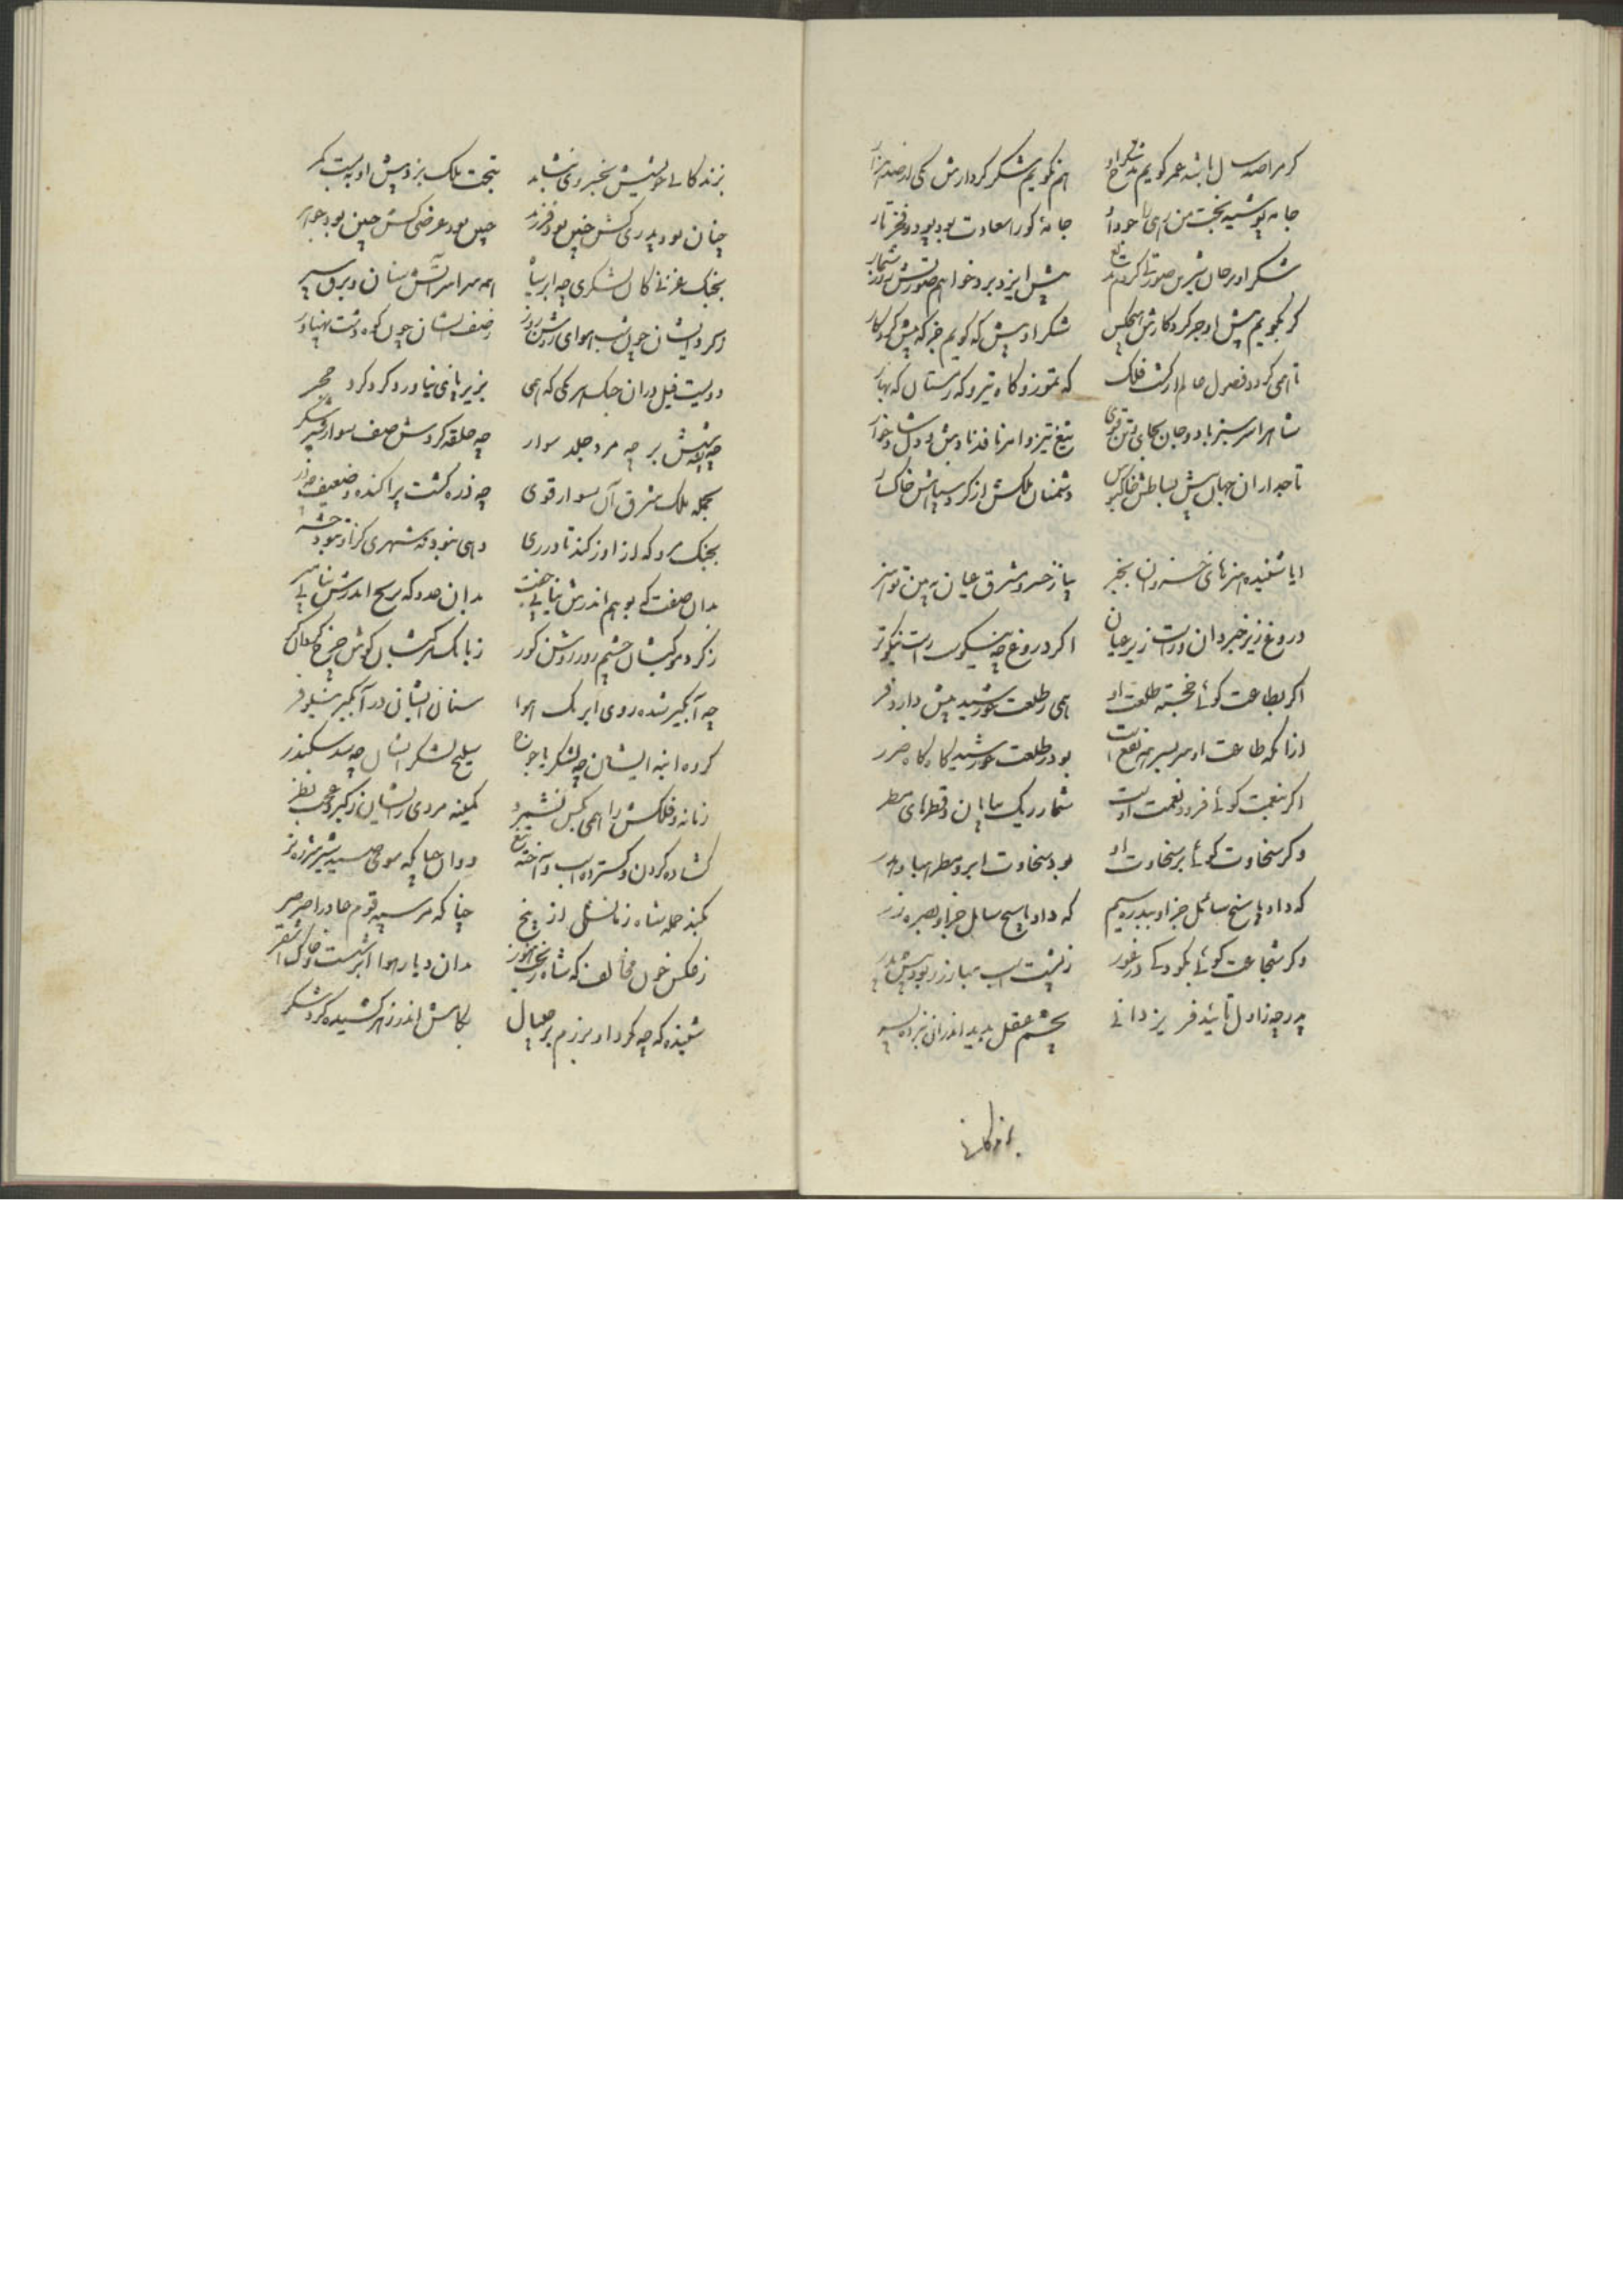 کر مرا صد سال باشد عمر کویم مدح او هم نکویم شکر کردارش یکی از صد هزار
جامه پوشید بخت من رهی را جود او جامهٔ کورا سعادت بود پود و فخر تار
شکر او بر جان شیرین صورتی کردم بدیع پیش ایزد برد خواهم صورتش روز شمار
کر نکویم پیش او جز کردکارش هیچکس شکر او پیش که کویم جز که پیش کردکار
تا همی کردد فصول عالم از کشت فلک که تموز و کاه تیر و که زمستان که بهار
شاه را سر سبز باد و جان بجای و تن قوی تیغ تیز و امر نافذ نام نیک و دل شادخوار
تاجداران جهان پیش بساطش خاکبوس دشمنان ملکش از کرد سپاهش خاکسار
ایا شنیده هنرهای خسروان بخبر بیا ز خسرو مشرق عیان ببین تو هنر
دروغ زیر خبر دان و راست زیر عیان اکر دروغ چه نیکوست راست نیکوتر
اکر بطاعت کوئی خجسته طلعت او همی ز طلعت خورشید بیش دارد فر
ازانکه طاعت او سربسر همه نفع است بود ز طلعت خورشید کاه کاه ضرر
اکر بنعمت کوئی فزود نعمت اوست شمار ریک بیابان و قطرهای مطر
وکر سخاوت کوئی بر سخاوت او بود سخاوت ابر و مطر هبا و هدر
که داد پاسخ سائل جز او ببدره سیم که داد پاسخ سایل جز او بصره زر
وکر شجاعت کوئی بکودکی در غور ز پشت اسب مبارز ربود پیش پدر
پدر چه زاول تائید فر یزدانی بچشم عقل بدید اندران نبرده پسر
بزندکانی
بزندکانی خویش بخسروی بنشاند بتخت ملک بر و پیش او ببست کمر
چنان بود پدری کش چنین بود فرزند چنین بود عرضی کش چنین بود جوهر
بجنک غزنی کان لشکری چه ابر سیاه همه سراسر آتش سنان و برق سپر
ز کردایشان چون شب هوای روشن روز ز صفشان چون کوه دشت پهناور
دویست فیل دران جنک هر یکی که همی بزیر پای نیاورد کرد کرد مجر
چه پیش بر چه مرد جلد سوار چه حلقه کردش صف سوار شیر شکر
بجمله ملک مشرق آن سوار قوی چه ذره کشت پراکنده و ضعیف چه ذر
بجنک مرو که از اوزکند تا در ری دهی نبود نه شهری کزان نبود حشر
بدان صفت که بوهم اندرش نیابی جفت بدان عدد که بریح اندرش نیابی سر
ز کرد موکبشان چشم روز روشن کور ز بانک مرکبشان کوش چرخ کردان کر
چه آبکیر شده روی ابر رنک هوا سنان ایشان در آبکیر نیلوفر
کرده انبه ایشان چه لشکر یاجوج سلیح لشکر ایشان چه سد سکندر
زمانه و فلکش را همی بکس نشمرد کمینه مردی زایشان ز کبر و عجب بطر
کشاده کردن و کسترده اسب و آخته تیغ دوان چنانکه سوی صید شیر شرزه نر
بکند حمله شاه زمانشان از بیخ چنانکه مر سپه قوم عاد را صرصر
ز عکس خون مخالف که شاه ریخت هنوز بدان دیار هوا ابرشست و خاک اشقر
شنیدهٔ که چه کرد او برزم جیپال بکامش اندر زهر کشیده کرد شکر